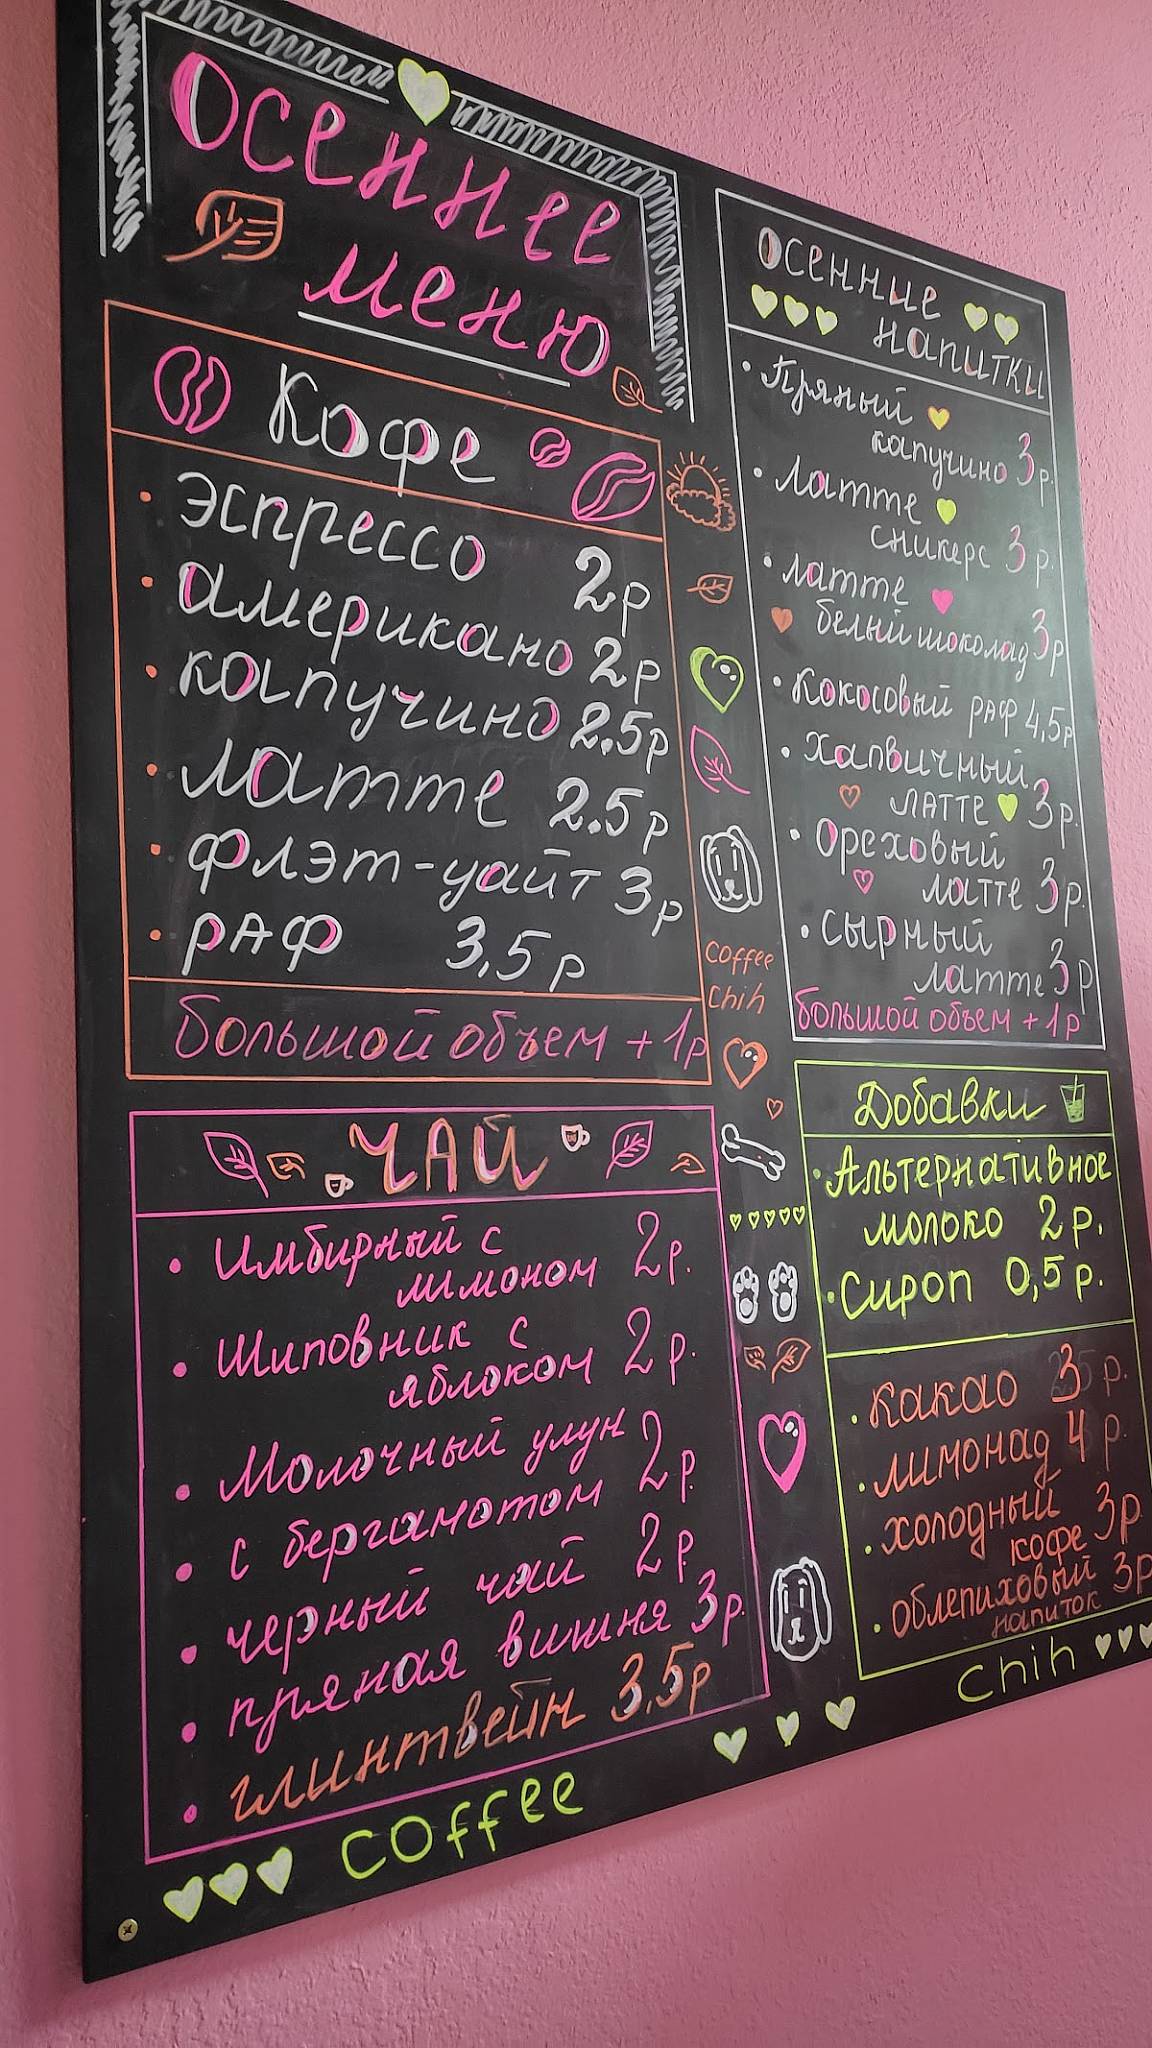 Осеннее
меню
Кофе
эспрессо 2р
американо 2р
капучино 2.5р
латте 2.5р
флэт-уайт 3р
раф 3,5р
Большой объем +1р
ЧАЙ
Имбирный с
лимоном 2р.
Шиповник с
яблоком 2р.
Молочный улун 2р.
с бергамотом 2р.
черный чай 2р.
пряная вишня 3р.
глинтвейн 3,5р
coffee
осенние
напитки
Пряный
капучино 3р.
Латте
сникерс 3р.
латте
белый шоколад 3р
Кокосовый раф 4,5р
Халвичный
латте 3р.
Ореховый
латте 3р.
Сырный
латте 3р
большой объем +1р
Добавки
Альтернативное
молоко 2р.
Сироп 0,5р.
Какао 3р.
лимонад 4р.
холодный
кофе 3р
облепиховый 3р
напиток
chih
coffee
chih